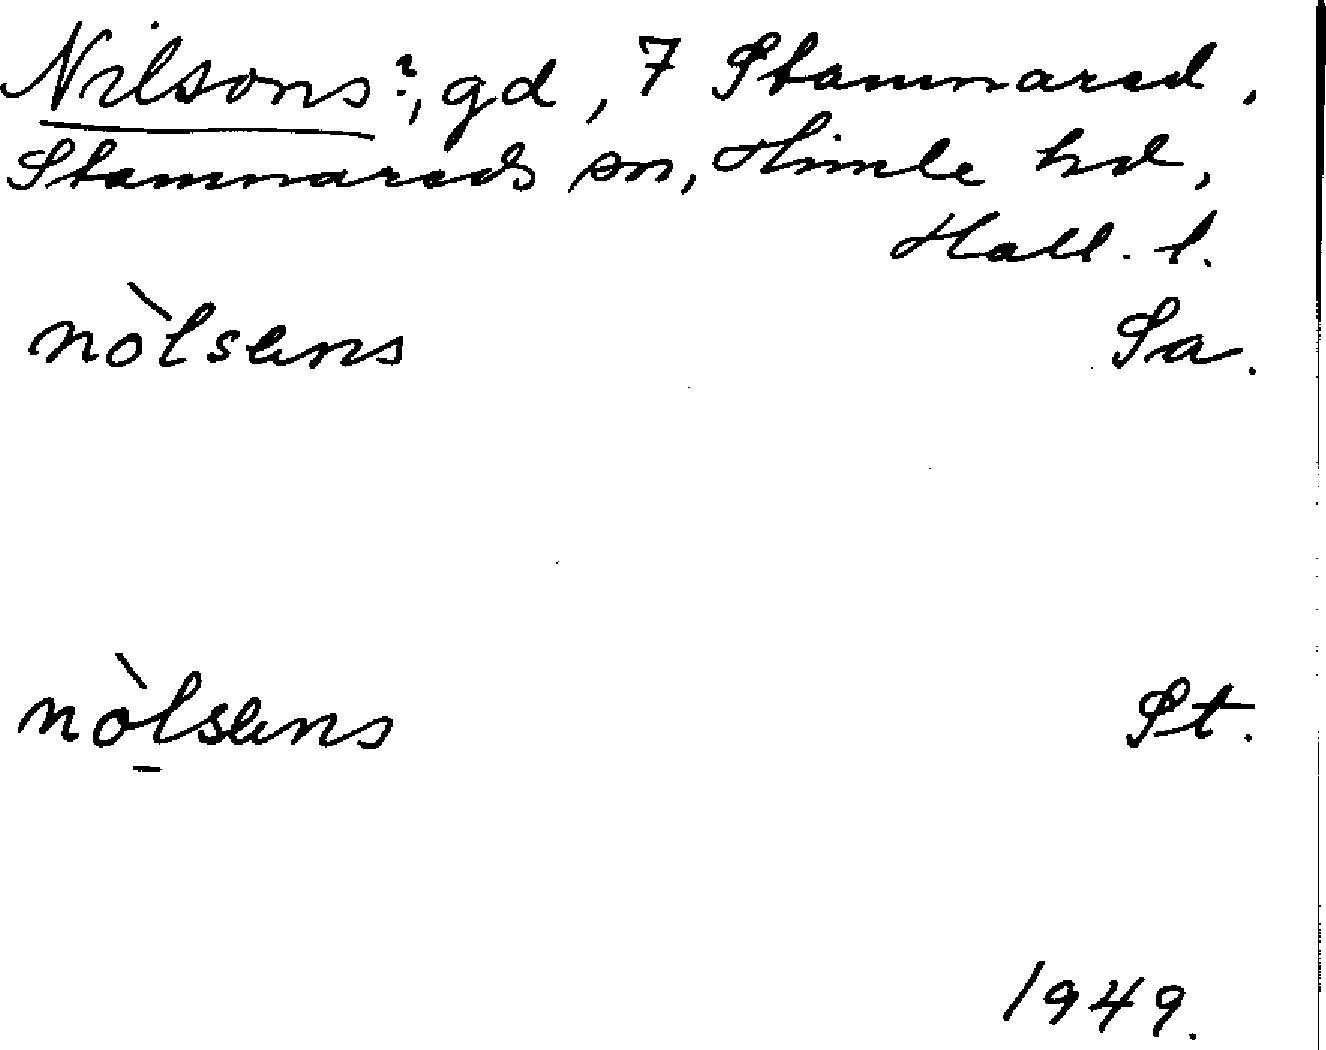 Nilsons?, gd, 7 Stamnared,
Stamnareds sn, Himle hd,
Hall. l.
nòlsens Sa.
nòlsens St.
1949.